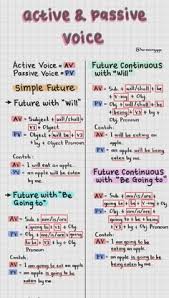 active & passive
voice
Active Voice = AV
Passive Voice = PV
Simple Future
Future with "Will"
AV = Subject + will/shall +
V1 + Object
PV = Object + will be +
V3 + by + Obj
Pronoun
Contoh:
AV = I will eat an apple.
PV = an apple will be
eaten by me.
Future with "Be
Going to"
AV =
PV =
Pronoun
Contoh:
AV = I am going to eat an apple
PV = an apple is going to be
eaten by me.
Future Continuous
with "Will"
AV = Sub + will/shall + be
+ Obj
PV = Obj + will/shall + be
being + V3 + by +
Obj Pronoun
Contoh:
AV = I will be eating an
apple.
PV = an apple will be being
eaten by me.
Future Continuous
with "Be Going to"
AV = Sub + am/is/are +
going to + be +
PV = Obj + am/is/are +
going to + be + being +
V3 + by + Obj Pronoun
Contoh:
AV = I am going to be
eating an apple
PV = an apple is going to be
being eaten by me.